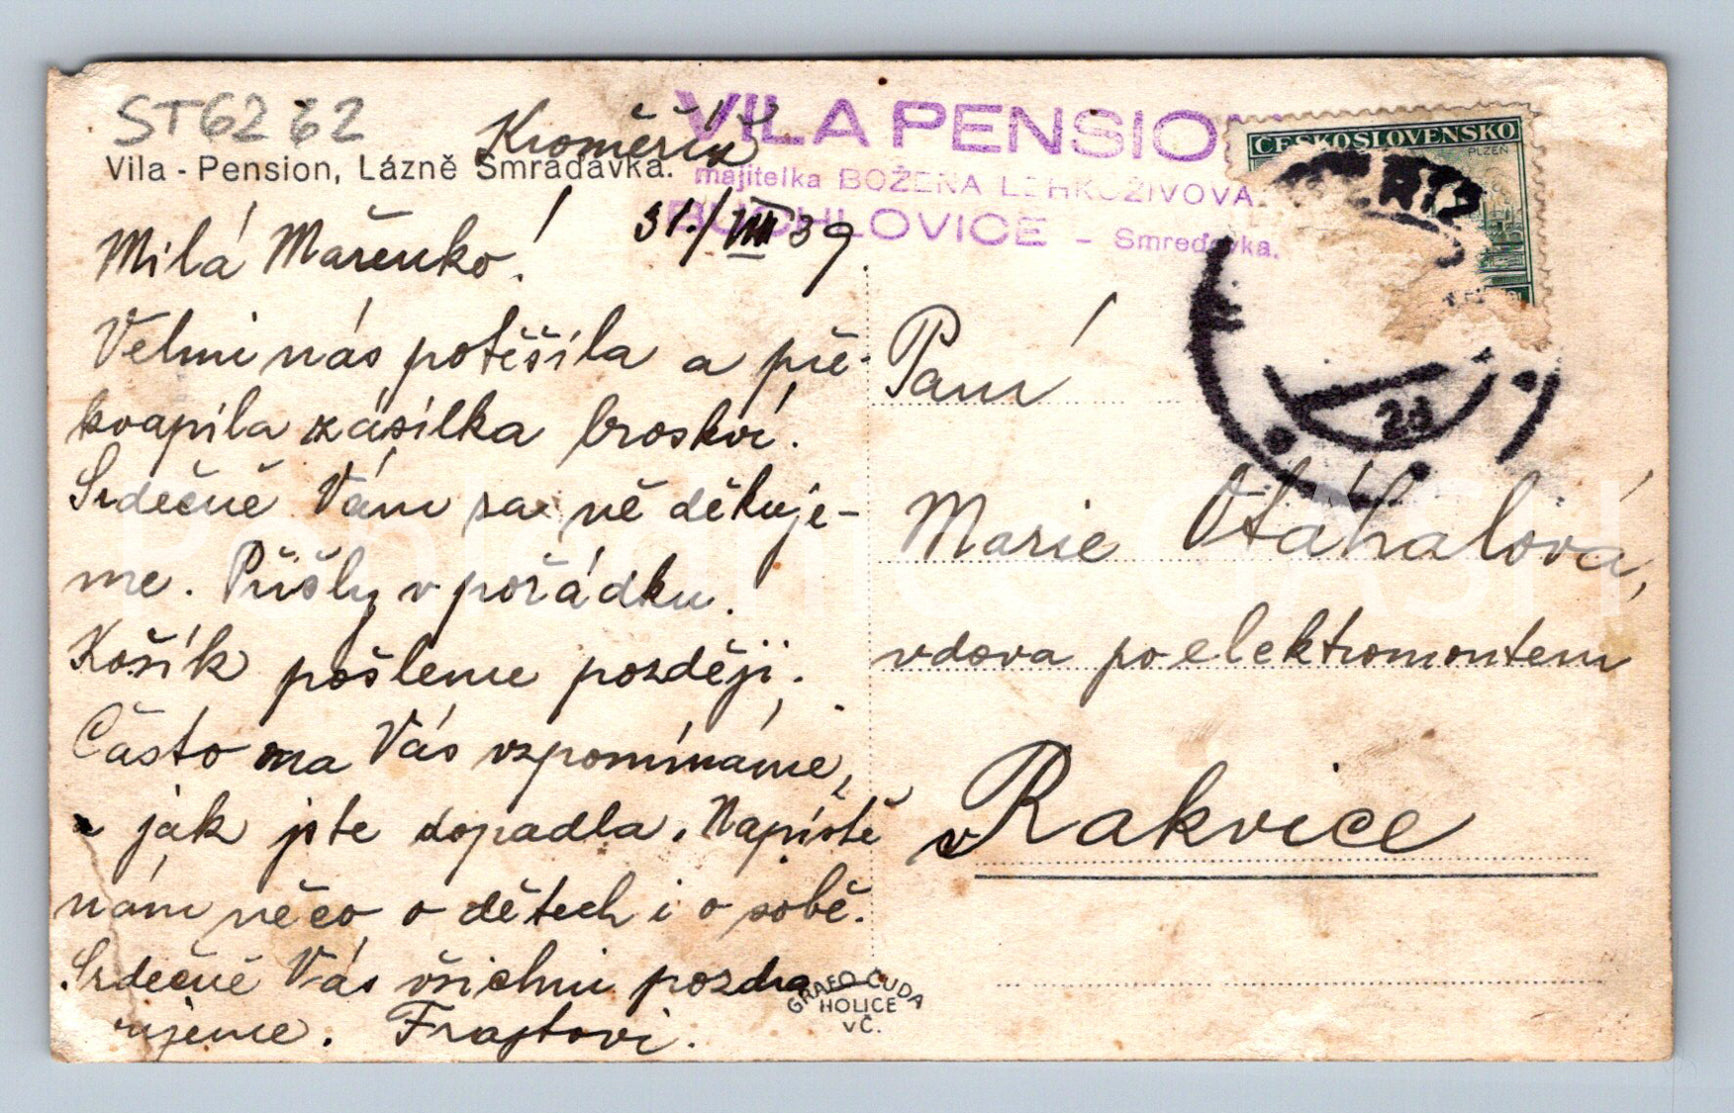 ST6262
Vila - Pension, Lázně Smraďavka.
Kroměříž
31./VIII 39
VILA PENSION
majitelka BOŽENA LEHKOŽIVOVÁ
BUCHLOVICE - Smreďavka.
ČESKOSLOVENSKO
PLZEŇ
2d
Milá Mařenko!
Velmi nás potěšila a pře-
kvapila zásilka broskví.
Srdečně Vám za ně děkuje-
me. Přišly v pořádku.
Košík pošleme později.
Často na Vás vzpomínáme,
jak jste dopadla. Napište
nám něco o dětech i o sobě.
Srdečně Vás všichni pozdra
vujeme. Frajtovi.
Paní
Marie Otáhalová,
vdova po elektromontéru
v Rakvice
GRAFO ČUDA
HOLICE
v Č.